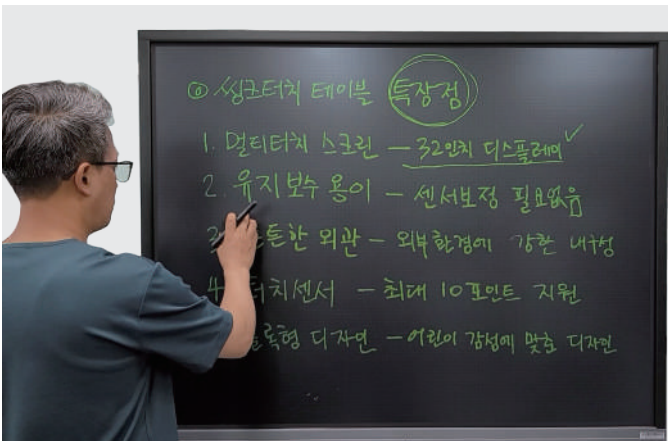 ◎ 씽크터치 테이블 특장점
1. 멀티터치 스크린 – 32인치 디스플레이 ✓
2. 유지보수 용이 – 센서보정 필요없음
3. 튼튼한 외관 – 외부환경에 강한 내구성
4. 터치센서 – 최대 10포인트 지원
디자인 – 어린이 감성에 맞춘 디자인